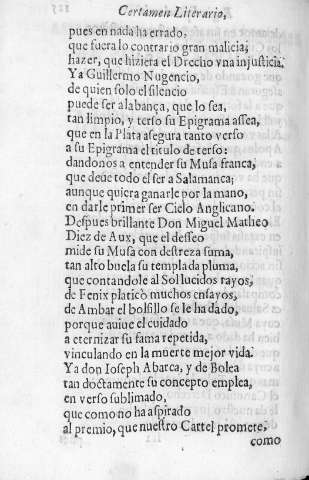 Certamen Literario,
pues en nada ha errado,
que fuera lo contrario gran malicia;
hazer, que hiziera el Drecho vna injusticia.
Ya Guillermo Nugencio,
de quien solo el silencio
puede ser alabança, que lo sea,
tan limpio, y terso su Epigrama assea,
que en la Plata asegura tanto verso
a su Epigrama el titulo de terso:
dandonos a entender su Musa franca,
que deue todo el ser a Salamanca;
aunque quiera ganarle por la mano,
en darle primer ser Cielo Anglicano.
Despues brillante Don Miguel Matheo
Diez de Aux, que el desseo
mide su Musa con destreza suma,
tan alto buela su templada pluma,
que contandole al Sol lucidos rayos,
de Fenix platicò muchos ensayos,
de Ambar el bolsillo se le ha dado,
porque auiue el cuidado
a eternizar su fama repetida,
vinculando en la muerte mejor vida.
Ya don Ioseph Abarca, y de Bolea
tan doctamente su concepto emplea,
en verso sublimado,
que como no ha aspirado
al premio, que nuestro Cartel promete.
como